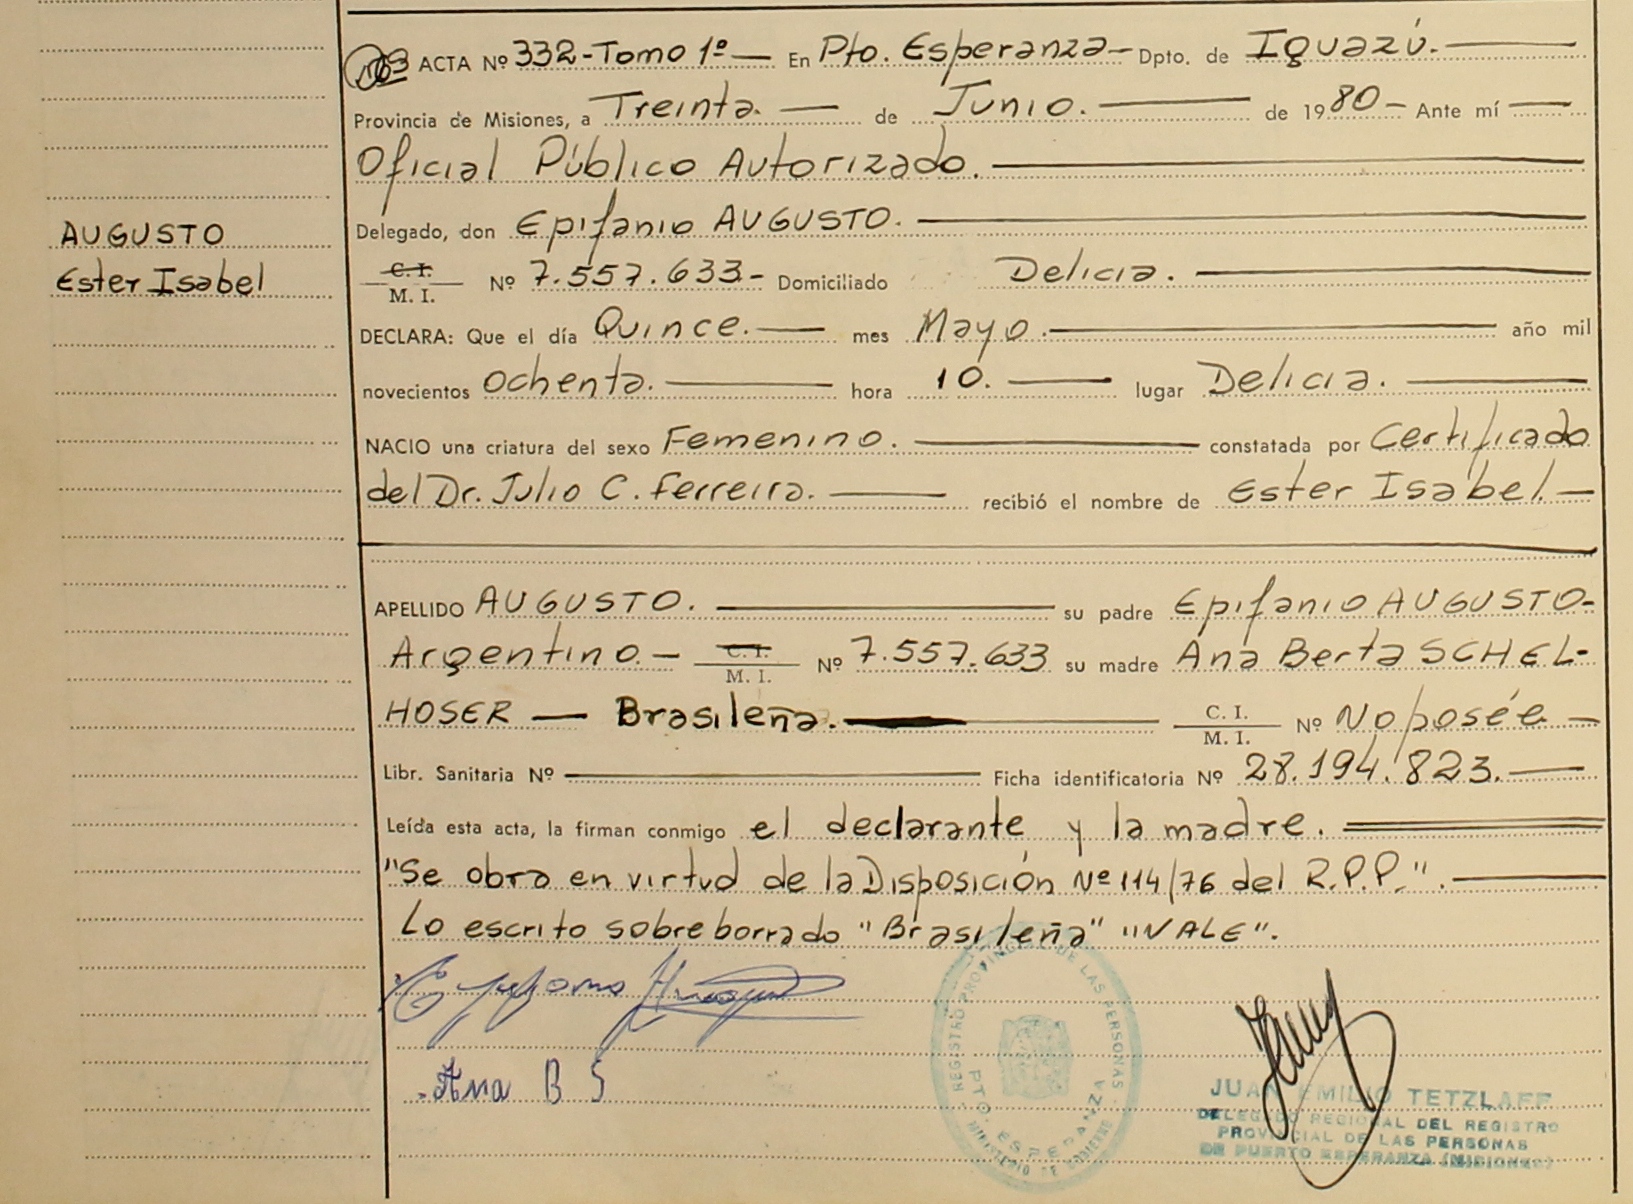 ACTA Nº 332-Tomo 1º — En Pto. Esperanza - Dpto. de Iguazú. —
Provincia de Misiones, a Treinta. — de Junio. — de 1980 - Ante mí —
Oficial Público Autorizado. —
AUGUSTO
Ester Isabel
Delegado, don Epifanio AUGUSTO. —
C. I.
M. I. Nº 7.557.633- Domiciliado Delicia. —
DECLARA: Que el día Quince. — mes Mayo. — año mil
novecientos Ochenta. — hora 10. — lugar Delicia. —
NACIO una criatura del sexo Femenino. — constatada por Certificado
del Dr. Julio C. Ferreira. — recibió el nombre de Ester Isabel. —
APELLIDO AUGUSTO. — su padre Epifanio AUGUSTO-
Argentino. - C. I.
M. I. Nº 7.557.633 su madre Ana Berta SCHEL-
HOSER — Brasileña. — C. I.
M. I. Nº No poseé —
Libr. Sanitaria Nº — Ficha identificatoria Nº 28.194.823. —
Leída esta acta, la firman conmigo el declarante y la madre. —
"Se obra en virtud de la Disposición Nº 114/76 del R.P.P.". —
Lo escrito sobreborrado "Brasileña" "VALE".
Ana B S
REGISTRO PROVINCIAL DE LAS PERSONAS
PTO. ESPERANZA
MINISTERIO DE GOBIERNO
JUAN EMILIO TETZLAFF
DELEGADO REGIONAL DEL REGISTRO
PROVINCIAL DE LAS PERSONAS
DE PUERTO ESPERANZA (MISIONES)